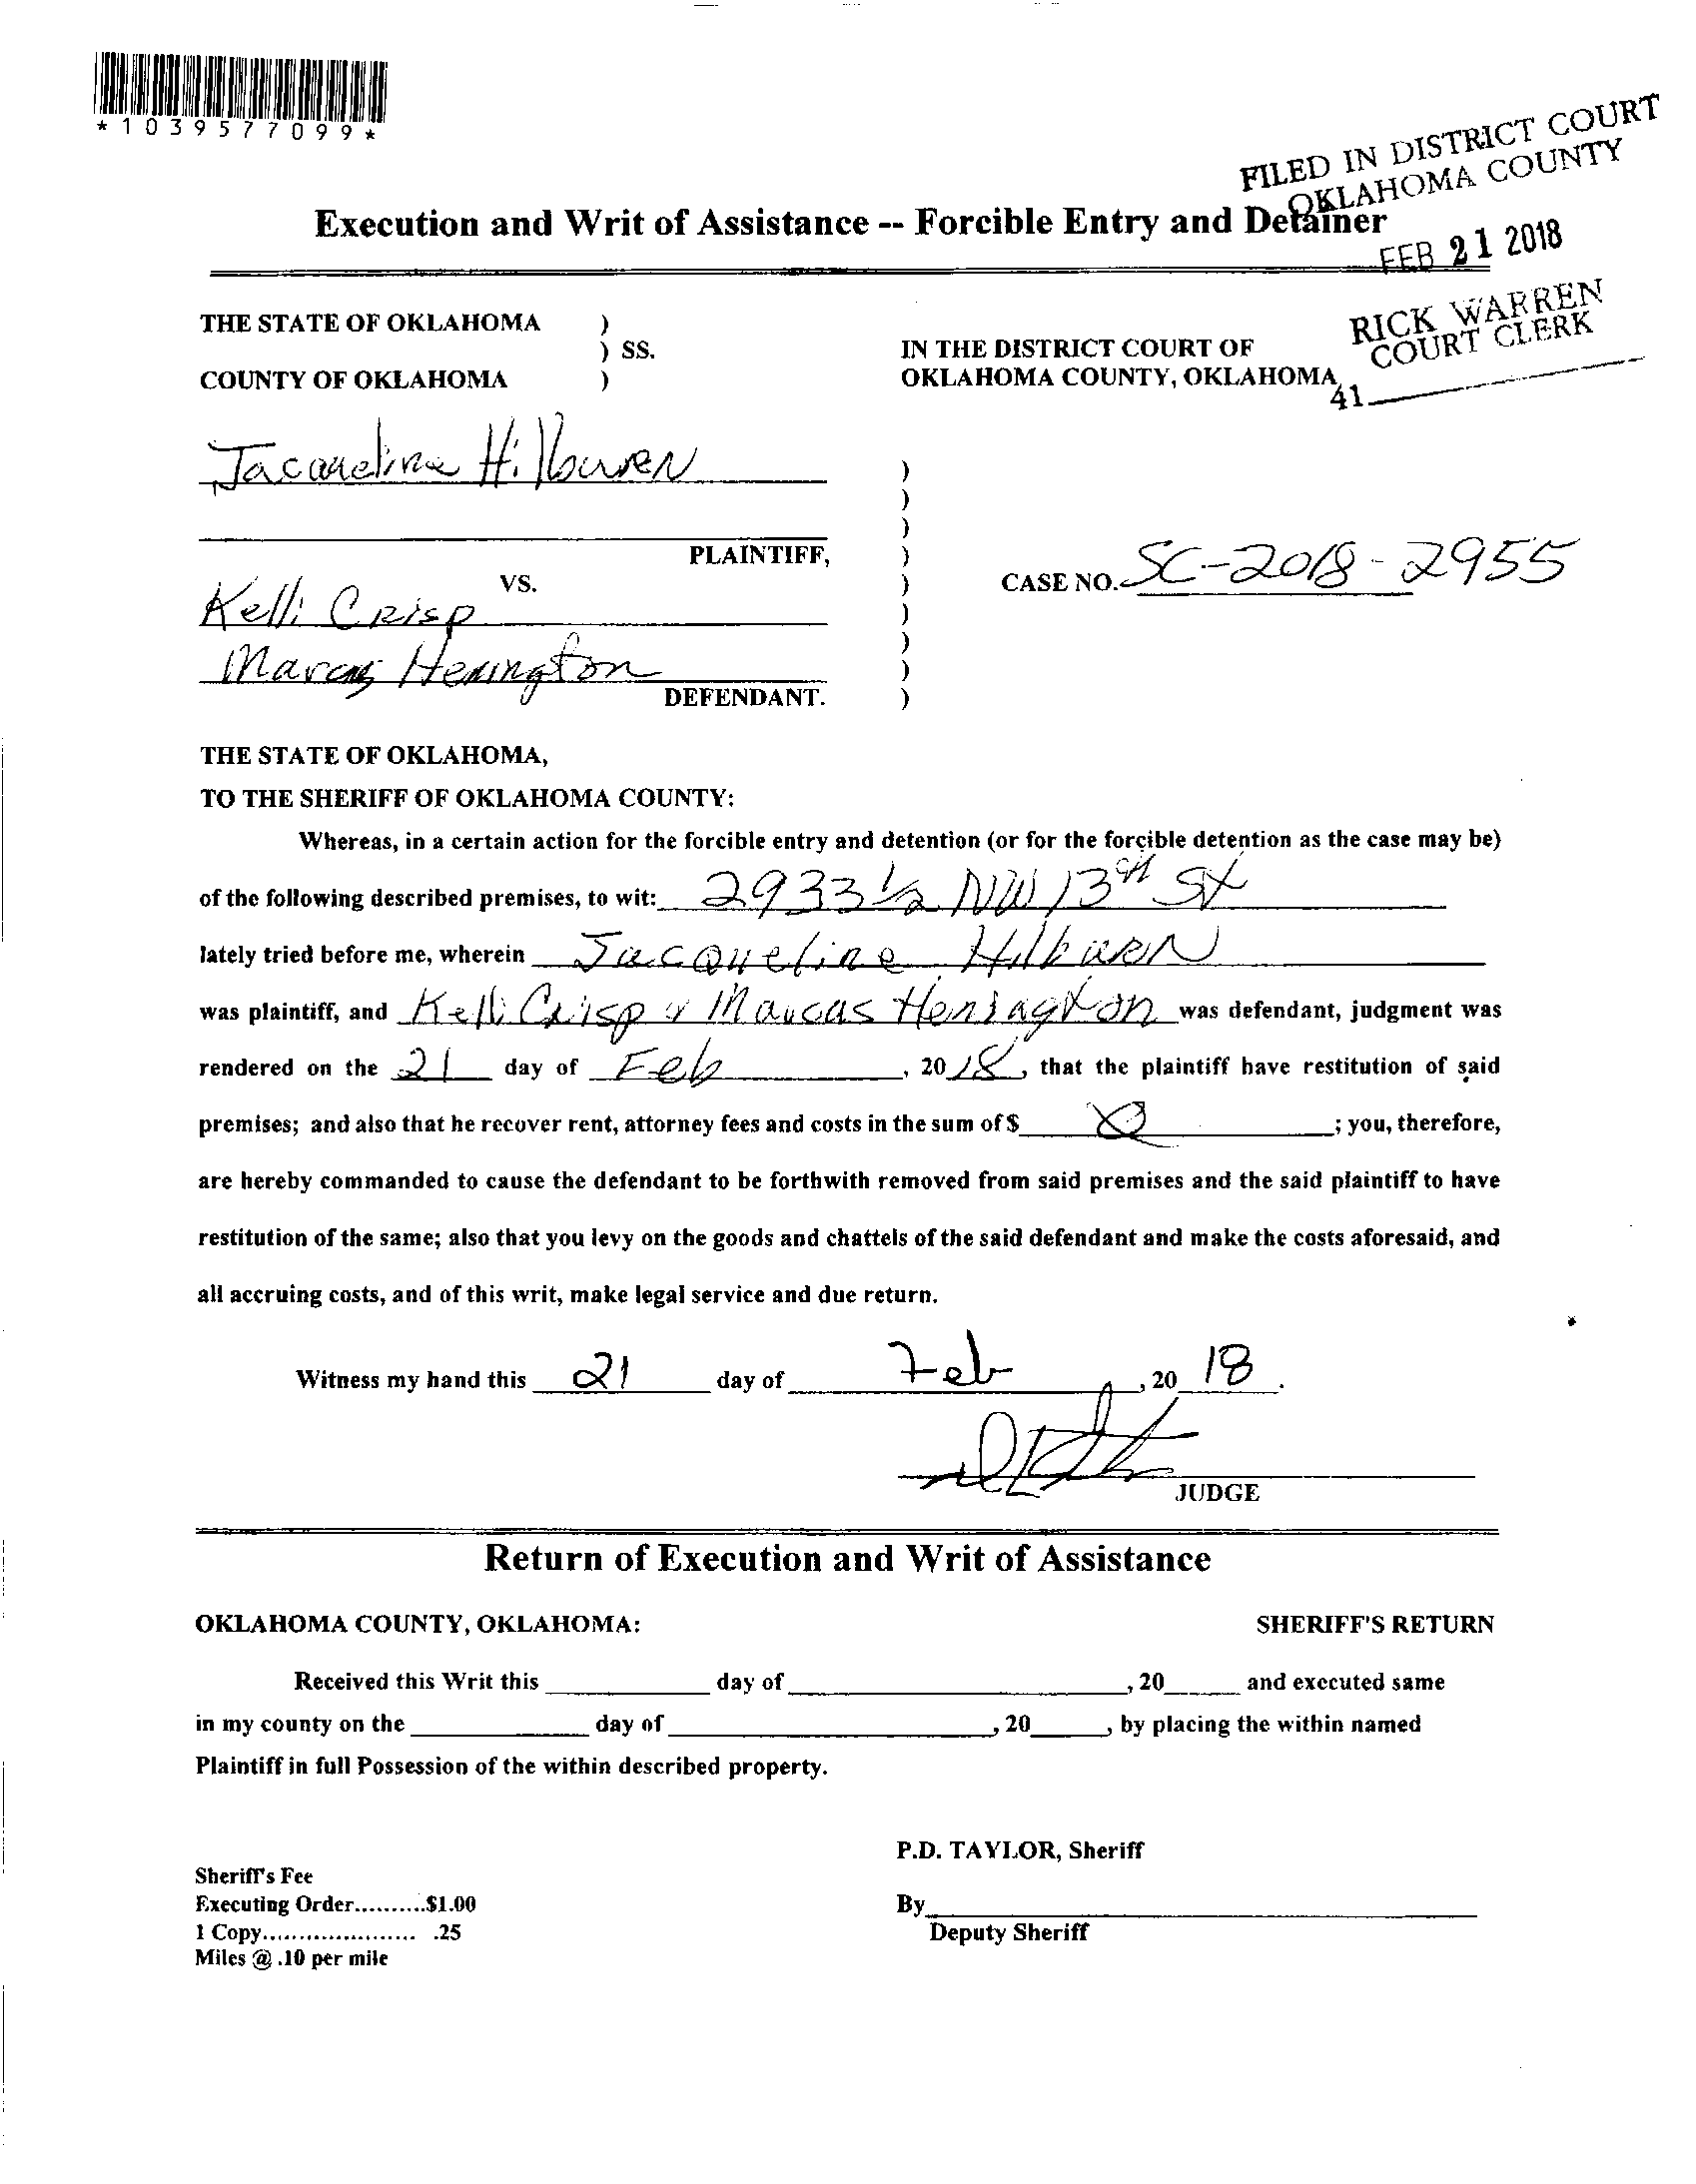 *1039577099*
FILED IN DISTRICT COURT
OKLAHOMA COUNTY
Execution and Writ of Assistance -- Forcible Entry and Detainer
FEB 21 2018
RICK WARREN
COURT CLERK
41
THE STATE OF OKLAHOMA )
) SS.
COUNTY OF OKLAHOMA )
IN THE DISTRICT COURT OF
OKLAHOMA COUNTY, OKLAHOMA
Jacqueline Hilburn
PLAINTIFF,
VS.
CASE NO. SC-2018-2955
Kelli Crisp
Marcus Henington
DEFENDANT.
THE STATE OF OKLAHOMA,
TO THE SHERIFF OF OKLAHOMA COUNTY:
Whereas, in a certain action for the forcible entry and detention (or for the forcible detention as the case may be)
of the following described premises, to wit: 2933 1/2 NW 13th St
lately tried before me, wherein Jacqueline Hilburn
was plaintiff, and Kelli Crisp & Marcus Henington was defendant, judgment was
rendered on the 21 day of Feb, 2018, that the plaintiff have restitution of said
premises; and also that he recover rent, attorney fees and costs in the sum of $ ; you, therefore,
are hereby commanded to cause the defendant to be forthwith removed from said premises and the said plaintiff to have
restitution of the same; also that you levy on the goods and chattels of the said defendant and make the costs aforesaid, and
all accruing costs, and of this writ, make legal service and due return.
Witness my hand this 21 day of Feb, 2018.
JUDGE
Return of Execution and Writ of Assistance
OKLAHOMA COUNTY, OKLAHOMA: SHERIFF'S RETURN
Received this Writ this ____ day of ____, 20____ and executed same
in my county on the ____ day of ____, 20____, by placing the within named
Plaintiff in full Possession of the within described property.
P.D. TAYLOR, Sheriff
Sheriff's Fee
Executing Order..........$1.00
By____
1 Copy..................... .25
Deputy Sheriff
Miles @ .10 per mile